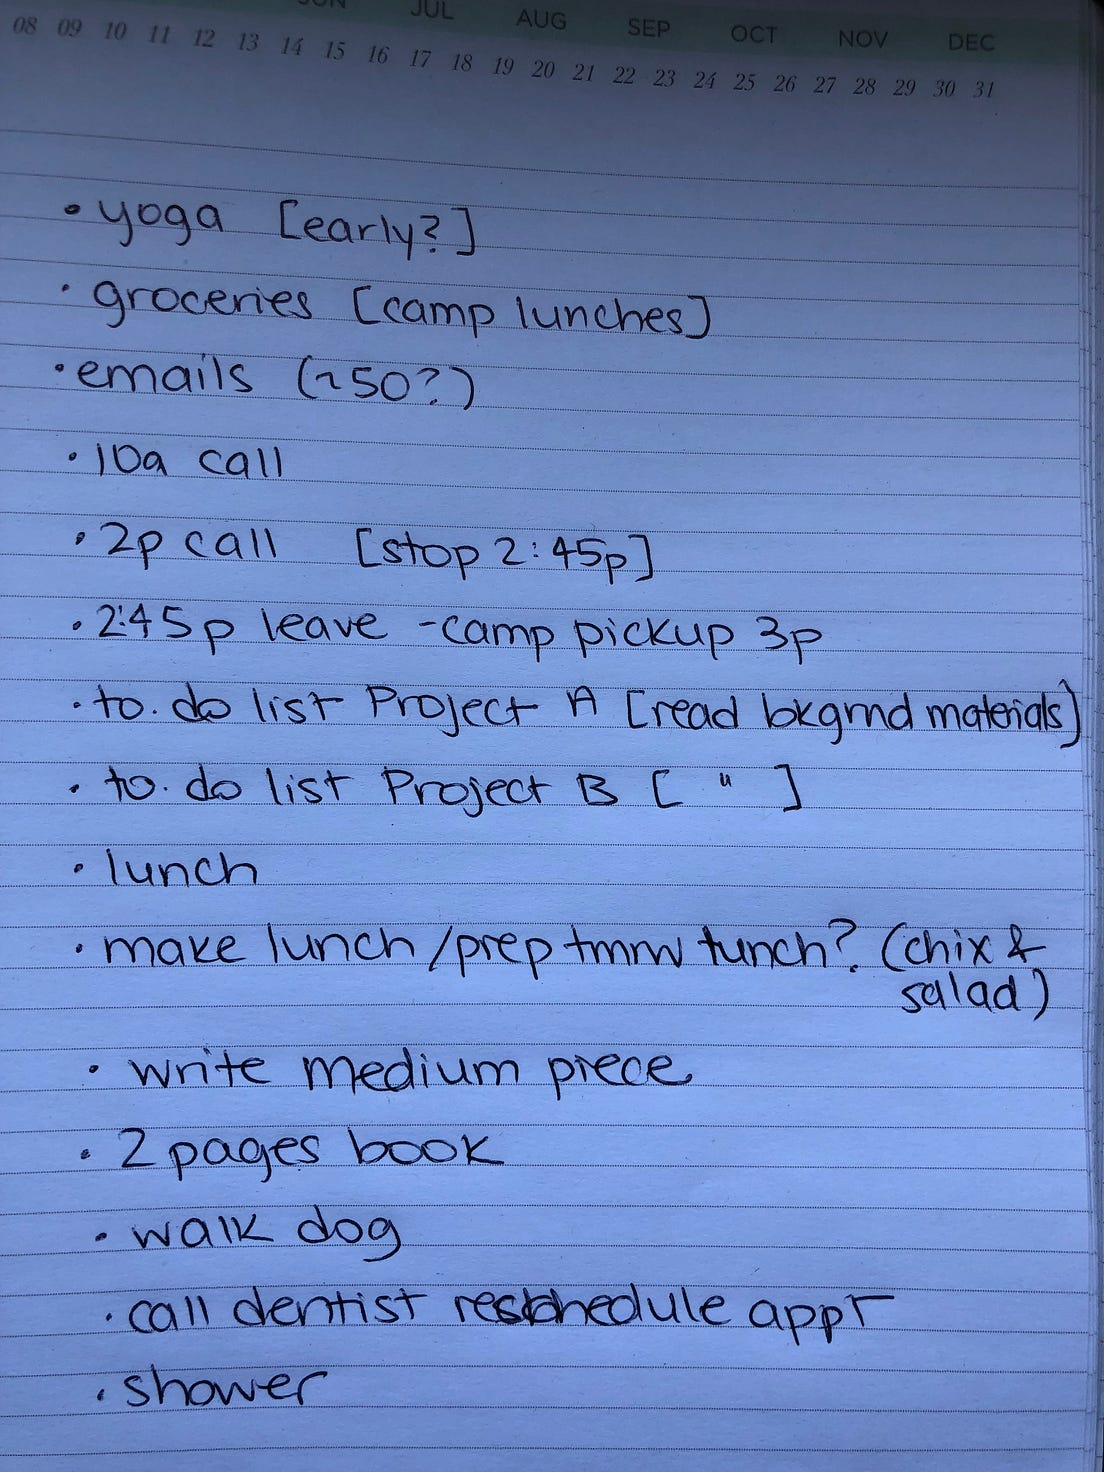 JUN JUL AUG SEP OCT NOV DEC
08 09 10 11 12 13 14 15 16 17 18 19 20 21 22 23 24 25 26 27 28 29 30 31
• yoga [early?]
• groceries [camp lunches]
• emails (~50?)
• 10a call
• 2p call [stop 2:45p]
• 2:45p leave - camp pickup 3p
• to.do list Project A [read bkgrnd materials]
• to.do list Project B [ " ]
• lunch
• make lunch/prep tmrw lunch? (chix &
salad)
• write medium piece
• 2 pages book
• walk dog
• call dentist reschedule appt
• shower